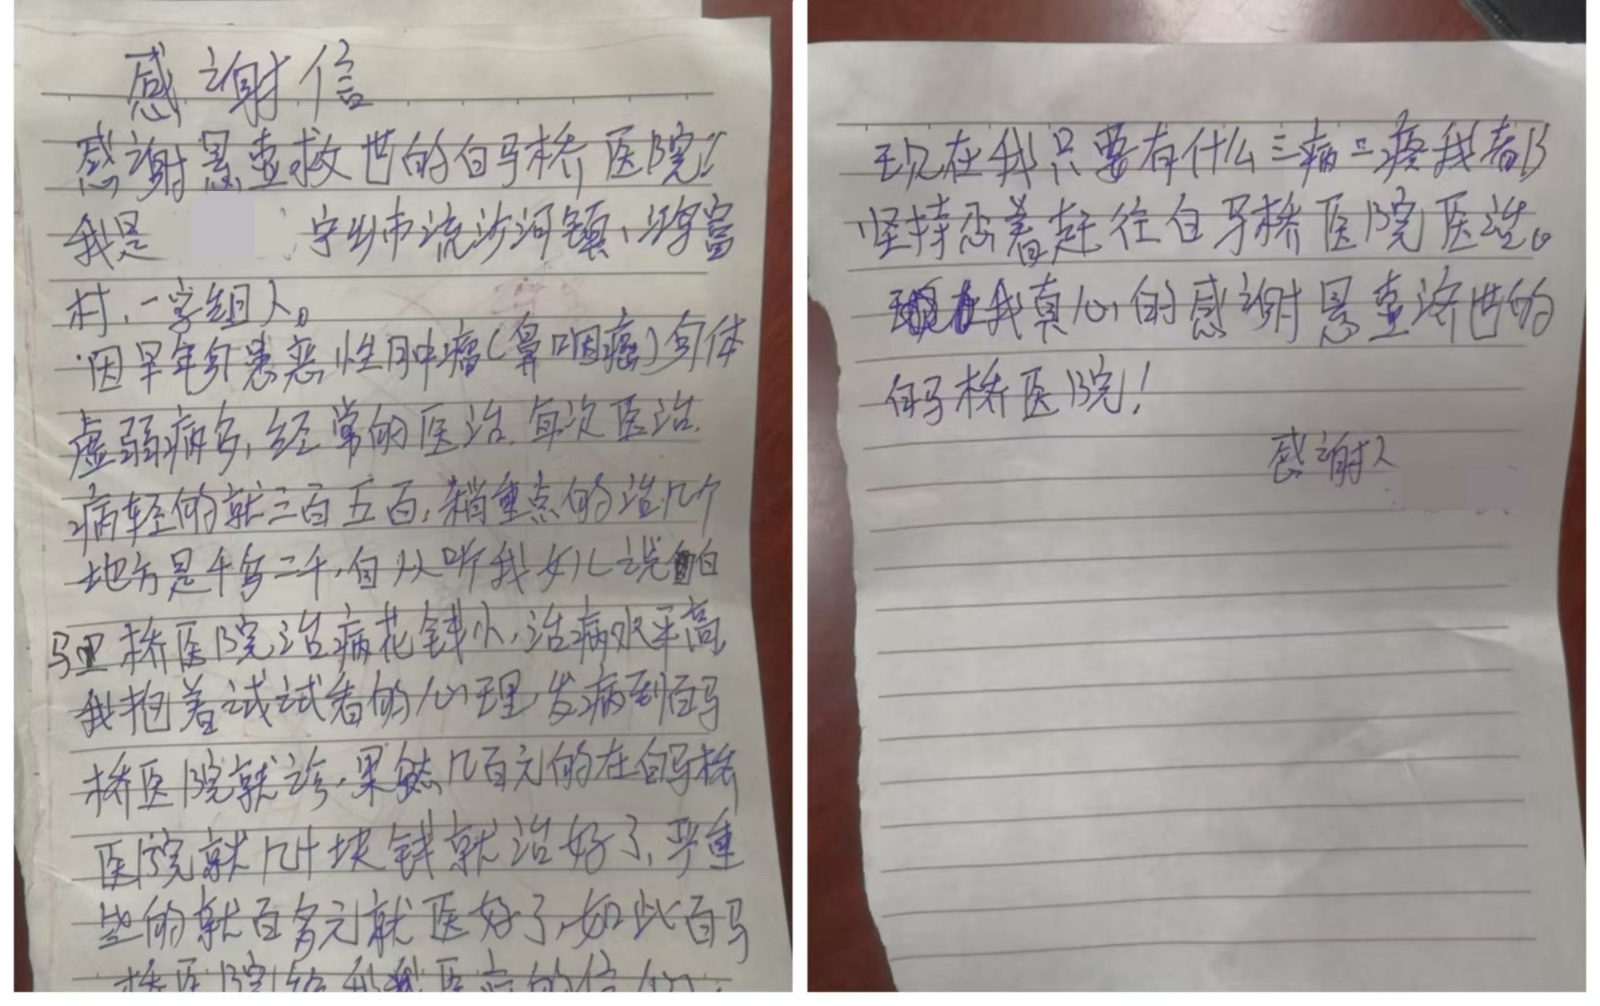 感谢信
感谢悬壶救世的白马桥医院!
我是 宁乡市流沙河镇、鸿富
村、一字组人。
因早年身患恶性肿瘤(鼻咽癌)身体
虚弱病多,经常的医治.每次医治.
病轻的就三百五百,稍重点的治几个
地方是千多二千,自从听我女儿说白
马桥医院治病花钱小,治病水平高
我抱着试试看的心理,发病到白马
桥医院就诊,果然几百元的在白马桥
医院就几十块钱就治好了,严重
些的就百多元就医好了,如此白马
桥医院给我医疗的信心.
现在我只要有什么三病二疼我都
坚持忍着赶往白马桥医院医治。
我真心的感谢悬壶济世的
白马桥医院!
感谢人